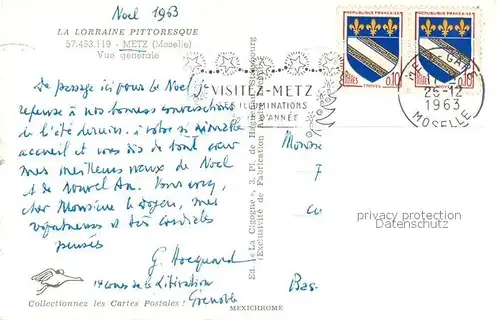 Noel 1963
LA LORRAINE PITTORESQUE
57.453.119 - METZ (Moselle)
Vue générale
De passage ici pour le Noel, je
repense à nos bonnes conversations
de l'été dernier, à votre si aimable
accueil et vous dis de tout cœur
mes meilleurs vœux de Noel
et de Nouvel An. Vous
cher Monsieur le Doyen, mes
et très cordiales
pensées
G. Hocquard
14 cours de la Libération
Grenoble
Collectionnez les Cartes Postales !
MEXICHROME
Ed. "La Cigogne", 3, Pl. de Haguenau, Strasbourg
(Exclusivité de Fabrication
VISITEZ-METZ
ILLUMINATIONS
D'ANNÉE
REPUBLIQUE FRANÇAISE
Postes 0,10
TROYES
REPUBLIQUE FRANÇAISE
0,10
METZ GARE
26-12
1963
MOSELLE
Monsieur
F
Bas
privacy protection
Datenschutz